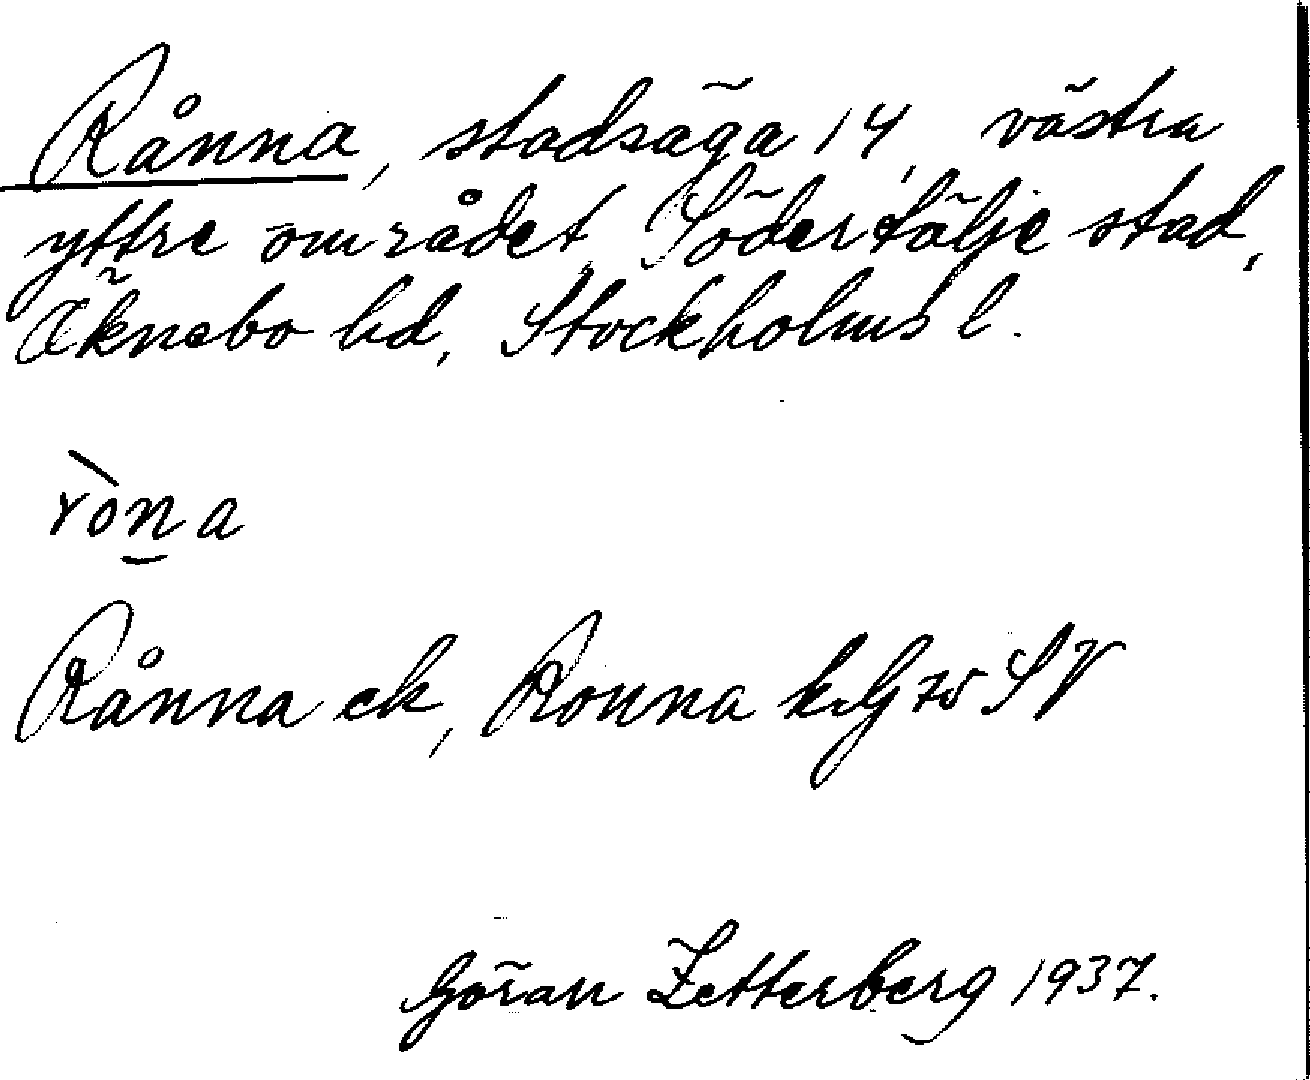 Rånna, stadsäga 14, västra
yttre området, Södertälje stad,
Öknebo hd, Stockholms l.
ròna
Rånna ek, Ronna k. SV
Göran Zetterberg 1937.